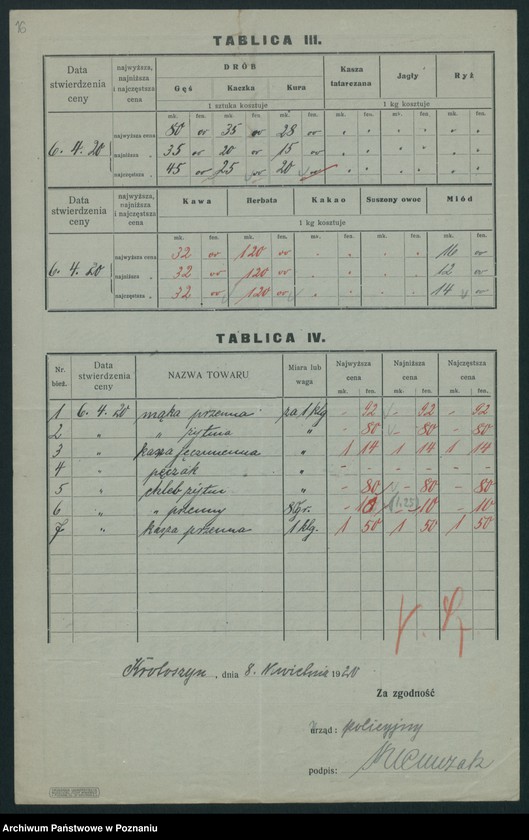 16
TABLICA III.
Data stwierdzenia ceny | najwyższa, najniższa i najczęstsza cena | DRÓB | Kasza tatarczana | Jagły | Ryż
Gęś | Kaczka | Kura
1 sztuka kosztuje | 1 kg kosztuje
mk. | fen. | mk. | fen. | mk. | fen. | mk. | fen. | mk. | fen. | mk. | fen.
6. 4. 20 | najwyższa cena | 50 | 35 | 28
najniższa " | 35 | 20 | 15
najczęstsza " | 45 | 25 | 20
Data stwierdzenia ceny | najwyższa, najniższa i najczęstsza cena | Kawa | Herbata | Kakao | Suszony owoc | Miód
1 kg kosztuje
mk. | fen. | mk. | fen. | mk. | fen. | mk. | fen. | mk. | fen.
6. 4. 20 | najwyższa cena | 32 | 120 | 16
najniższa " | 32 | 120 | 12
najczęstsza " | 32 | 120 | 14
TABLICA IV.
Nr. bież. | Data stwierdzenia ceny | NAZWA TOWARU | Miara lub waga | Najwyższa cena | Najniższa cena | Najczęstsza cena
mk. | fen. | mk. | fen. | mk. | fen.
1 | 6. 4. 20 | mąka pszenna | za 1 klg | - 92 | - 92 | - 92
2 | " | " żytnia | " | - 80 | - 80 | - 80
3 | " | kasza jęczmienna | " | 1 14 | 1 14 | 1 14
4 | " | pęczak | " | - - | - - | - -
5 | " | chleb żytni | " | - 80 | - 80 | - 80
6 | " | " pszenny | gr. | - 10 | - 10 | - 10
7 | " | kasza pszenna | 1 klg. | 1 50 | 1 50 | 1 50
Krotoszyn, dnia 8. Kwietnia 1920
Za zgodność
Urząd: policyjny
podpis:
Archiwum Państwowe w Poznaniu